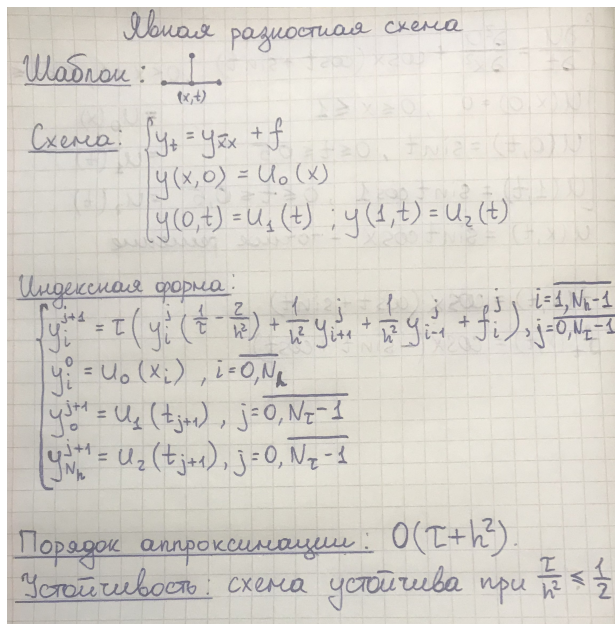 Явная разностная схема
Шаблон:
(x,t)
Схема:
y_t = y_{x̄x} + f
y(x,0) = u_0(x)
y(0,t) = u_1(t) ; y(1,t) = u_2(t)
Индексная форма:
y_i^{j+1} = τ( y_i^j ( 1/τ - 2/h² ) + 1/h² y_{i+1}^j + 1/h² y_{i-1}^j + f_i^j ), i = 1, N_h-1, j = 0, N_τ-1
y_i^0 = u_0(x_i) , i = 0, N_h
y_0^{j+1} = u_1(t_{j+1}) , j = 0, N_τ-1
y_{N_h}^{j+1} = u_2(t_{j+1}), j = 0, N_τ-1
Порядок аппроксимации: O(τ+h²).
Устойчивость: схема устойчива при τ/h² ≤ 1/2